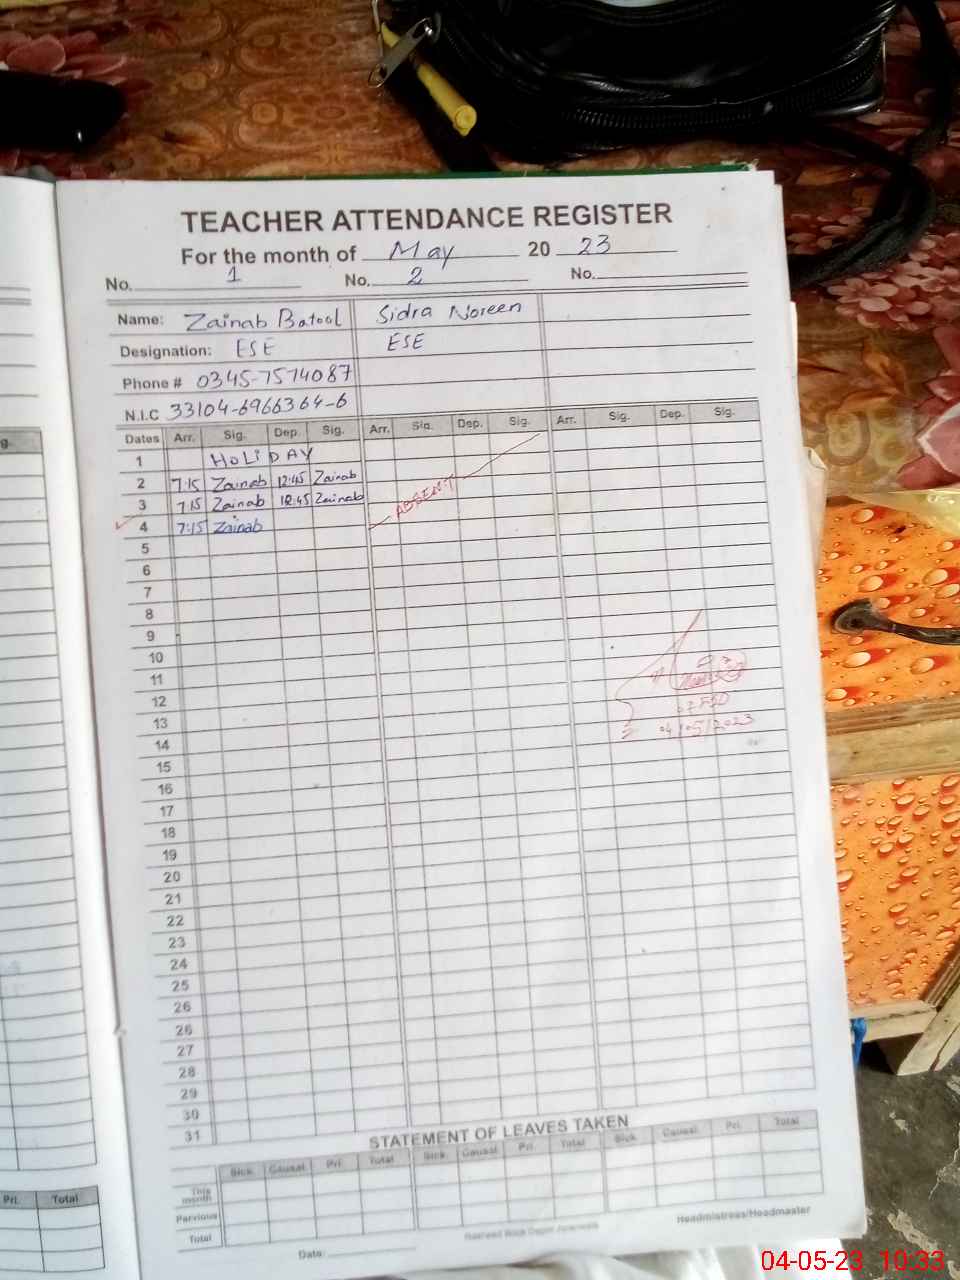 TEACHER ATTENDANCE REGISTER
For the month of May 20 23
No. 1 No. 2 No.
Name: Zainab Batool Sidra Noreen
Designation: ESE ESE
Phone # 0345-7574087
N.I.C 33104-6966364-6
Dates Arr. Sig. Dep. Sig. Arr. Sig. Dep. Sig. Arr. Sig. Dep. Sig.
1 HOLIDAY
2 7:15 Zainab 12:45 Zainab
3 7:15 Zainab 12:45 Zainab ABSENT
4 7:15 Zainab
5
6
7
8
9
10
11
12
13
14
04/05/2023
15
16
17
18
19
20
21
22
23
24
25
26
26
27
28
29
30
31
STATEMENT OF LEAVES TAKEN
Sick Causal Pri. Total Sick Causal Pri. Total Sick Causal Pri. Total
This month
Pervious
Total
Date:
Headmistress/Headmaster
g.
Pri. Total
04-05-23 10:33